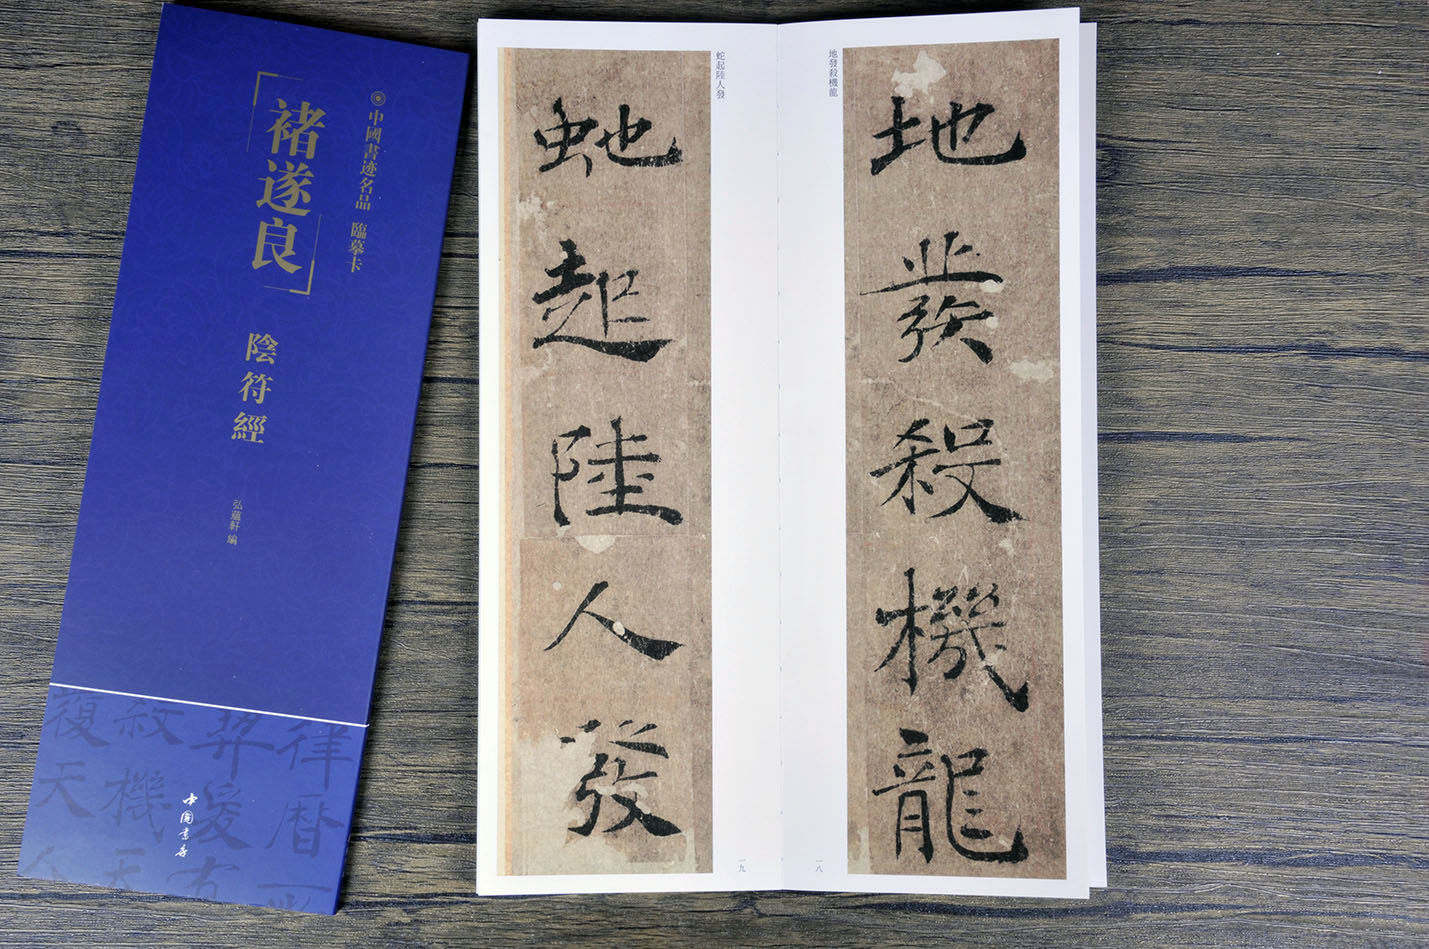 中國書迹名品 臨摹卡
褚遂良
陰符經
弘蘊軒 编
中國書店
地發殺機龍
地發殺機龍
一八
蛇起陸人發
蛇起陸人發
一九
律曆
天機天